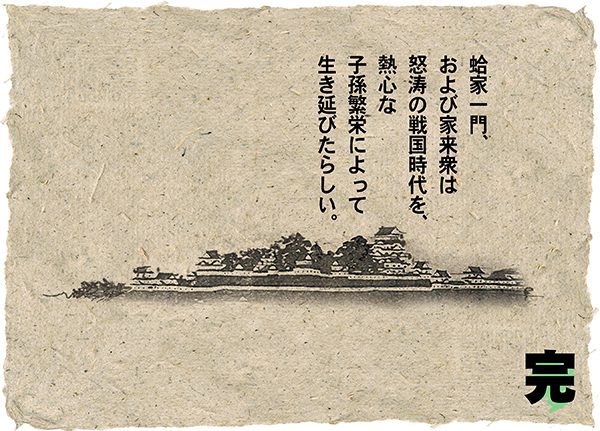 蛤家一門、
および家来衆は
怒涛の戦国時代を、
熱心な
子孫繁栄によって
生き延びたらしい。
完